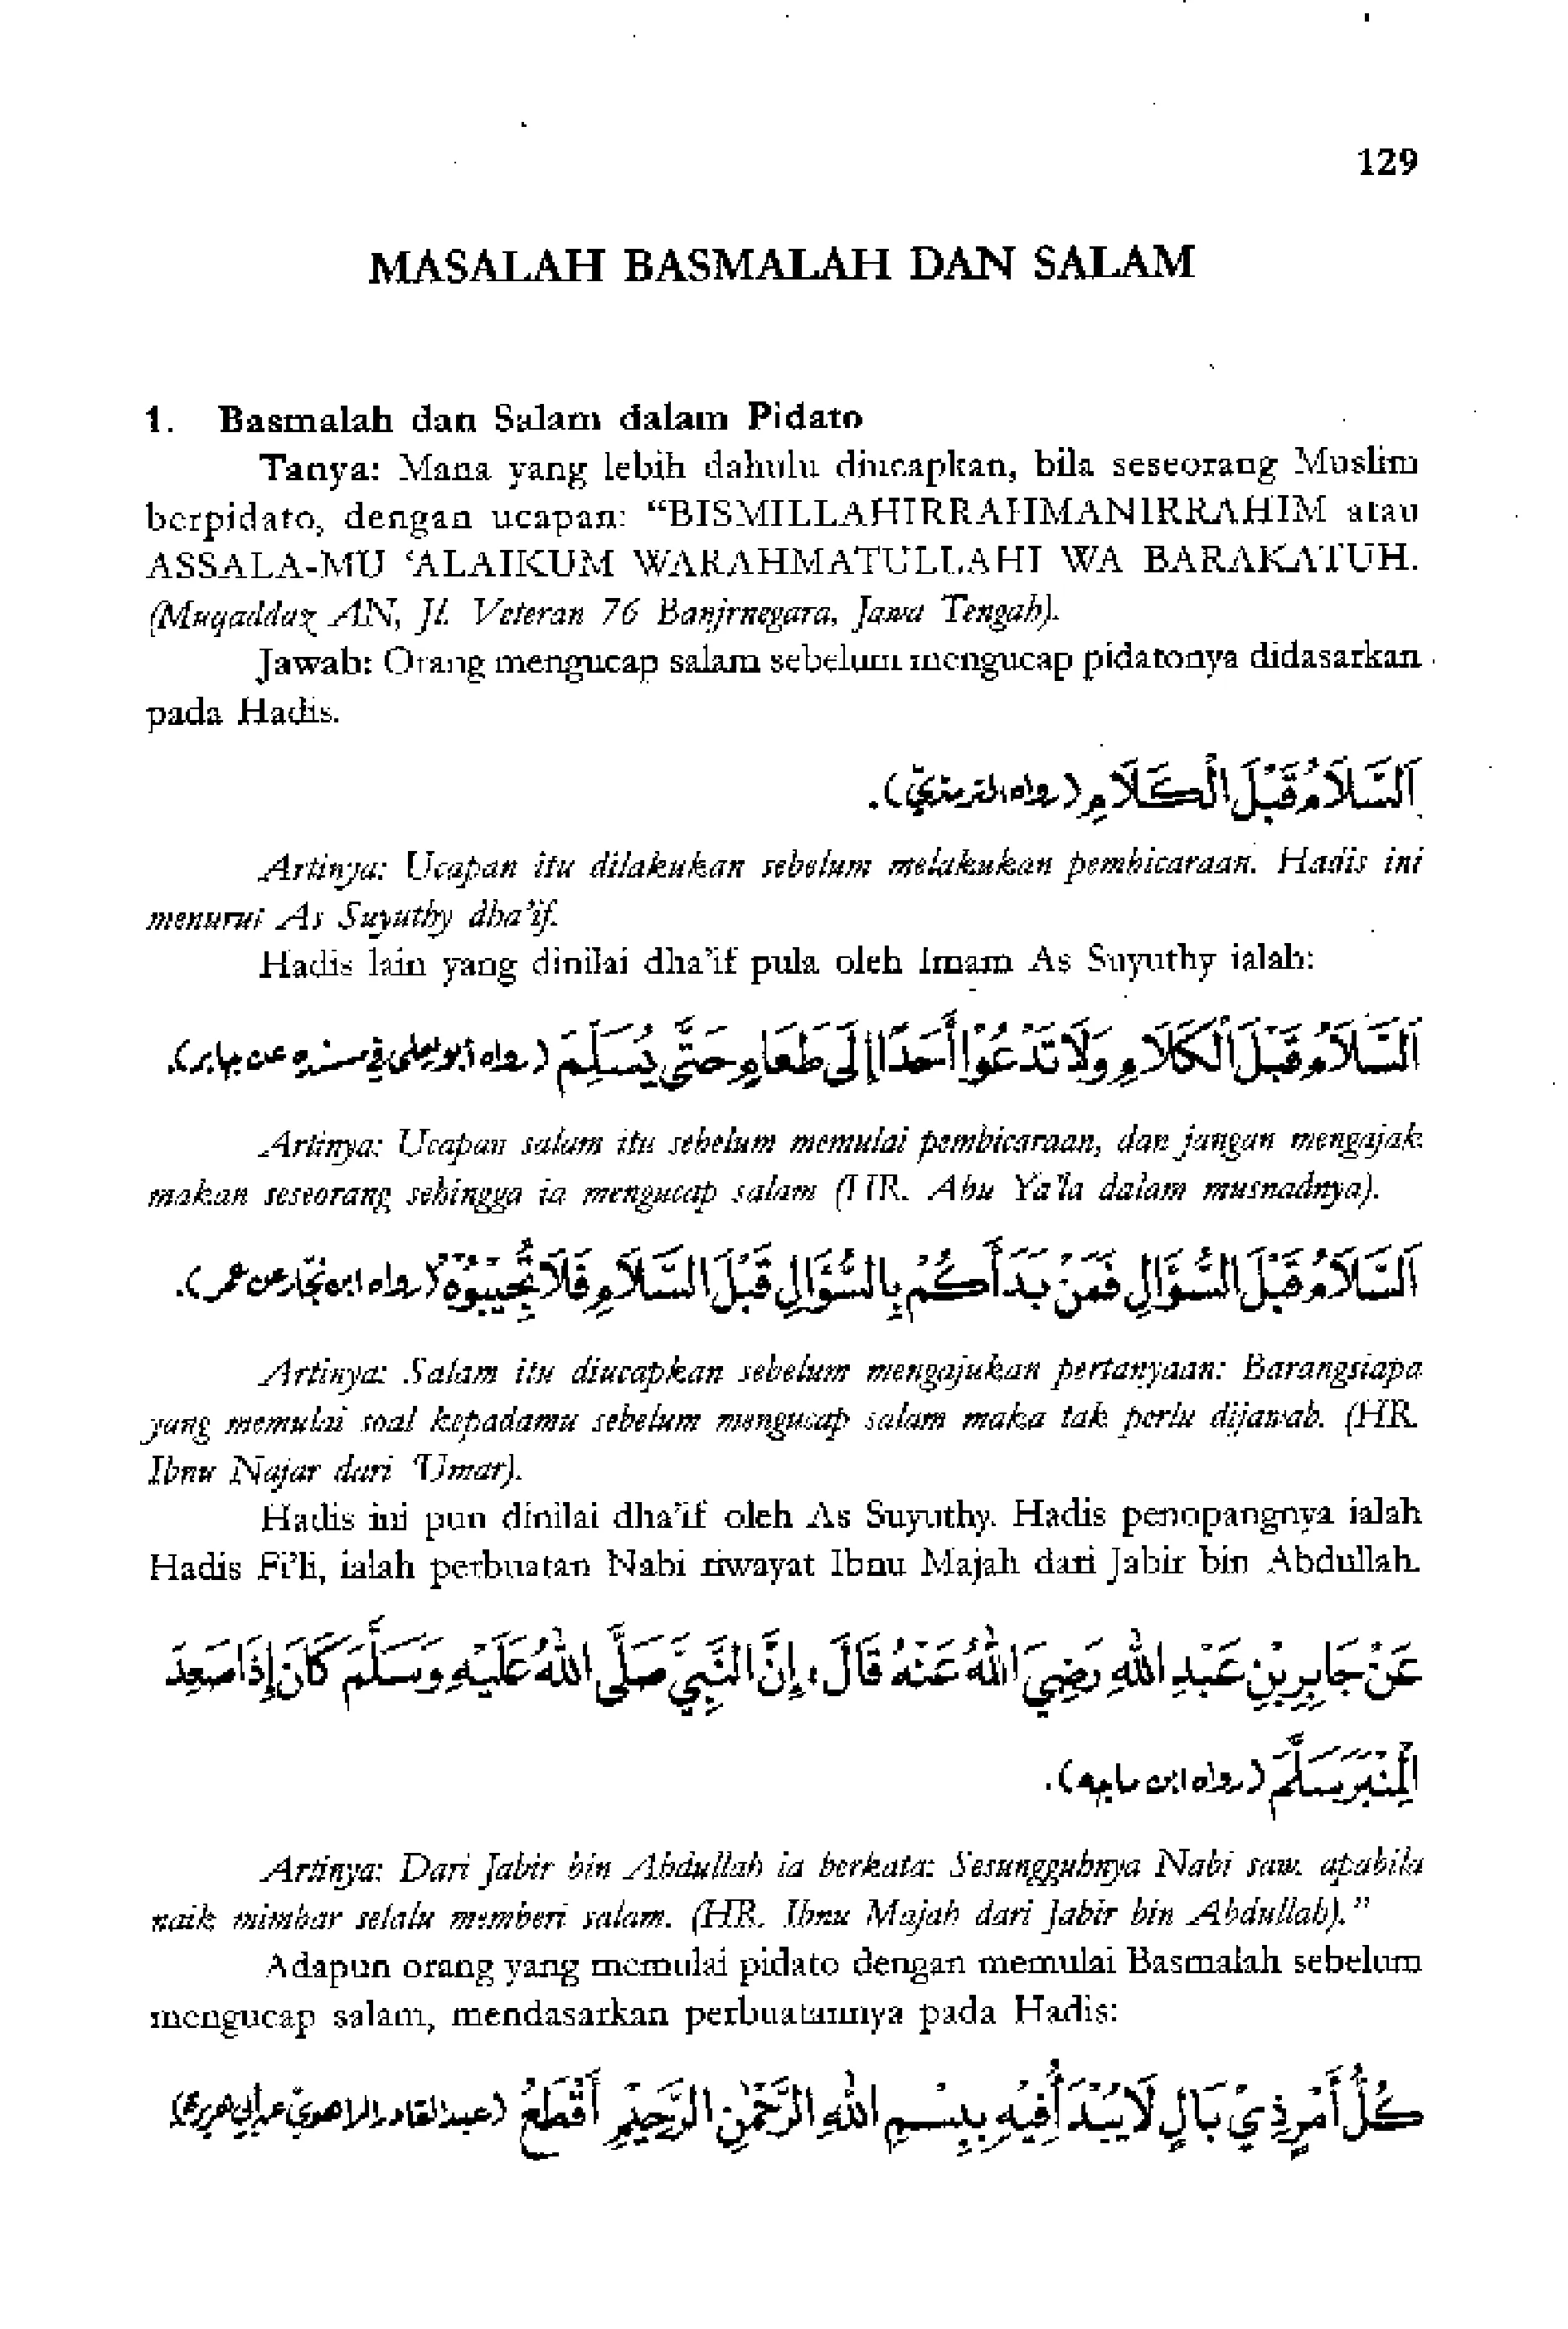 129
MASALAH BASMALAH DAN SALAM
1. Basmalah dan Salam dalam Pidato
Tanya: Mana yang lebih dahulu diucapkan, bila seseorang Muslim
berpidato, dengan ucapan: “BISMILLAHIRRAHMANIRRAHIM atau
ASSALA-MU ‘ALAIKUM WARAHMATULLAHI WA BARAKATUH.
(Muqaddaz AN, Jl. Veteran 76 Banjrnegara, Jawa Tengah).
Jawab: Orang mengucap salam sebelum mengucap pidatonya didasarkan
pada Hadis.
اَلسَّلَامُ قَبْلَ الْكَلَامِ (رواه الترمذيّ).
Artinya: Ucapan itu dilakukan sebelum melakukan pembicaraan. Hadis ini
menurut As Suyuthy dha’if.
Hadis lain yang dinilai dha’if pula oleh Imam As Suyuthy ialah:
اَلسَّلَامُ قَبْلَ الْكَلَامِ وَلَا تَدْعُوْا أَحَدًا إِلَى طَعَامٍ حَتَّى يُسَلِّمَ (رواه أبو يعلى في مسنده عن جابر).
Artinya: Ucapan salam itu sebelum memulai pembicaraan, dan jangan mengajak
makan seseorang sehingga ia mengucap salam (HR. Abu Ya’la dalam musnadnya).
اَلسَّلَامُ قَبْلَ السُّؤَالِ فَمَنْ بَدَأَكُمْ بِالسُّؤَالِ قَبْلَ السَّلَامِ فَلَا تُجِيْبُوْهُ (رواه ابن نجّار عن عمر).
Artinya: Salam itu diucapkan sebelum mengajukan pertanyaan: Barangsiapa
yang memulai soal kepadamu sebelum mengucap salam maka tak perlu dijawab. (HR.
Ibnu Najar dari ‘Umar).
Hadis ini pun dinilai dha’if oleh As Suyuthy. Hadis penopangnya ialah
Hadis Fi’li, ialah perbuatan Nabi riwayat Ibnu Majah dari Jabir bin Abdullah.
عَنْ جَابِرِ بْنِ عَبْدِ اللهِ رَضِيَ اللهُ عَنْهُ قَالَ، إِنَّ النَّبِيَّ صَلَّى اللهُ عَلَيْهِ وَسَلَّمَ كَانَ إِذَا صَعِدَ
الْمِنْبَرَ سَلَّمَ (رواه ابن ماجه).
Artinya: Dari Jabir bin Abdullah ia berkata: Sesungguhnya Nabi saw. apabila
naik mimbar selalu memberi salam. (HR. Ibnu Majah dari Jabir bin Abdullah).”
Adapun orang yang memulai pidato dengan memulai Basmalah sebelum
mengucap salam, mendasarkan perbuatannya pada Hadis:
كُلُّ أَمْرٍ ذِيْ بَالٍ لَا يُبْدَأُ فِيْهِ بِبِسْمِ اللهِ الرَّحْمٰنِ الرَّحِيْمِ أَقْطَعُ (عبد القادر الرهويّ عن أبي هريرة)